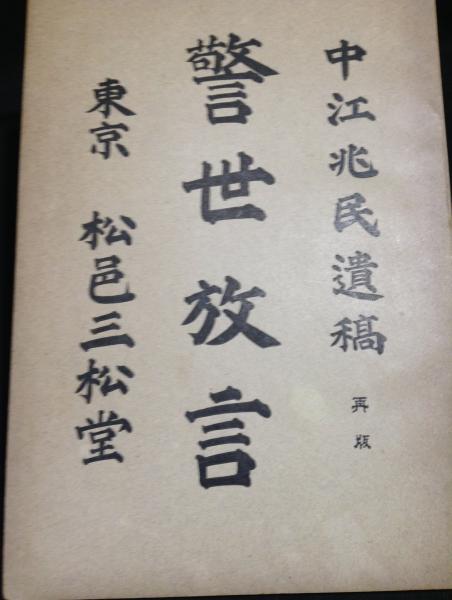 中江兆民遺稿 再版
警世放言
東京 松邑三松堂